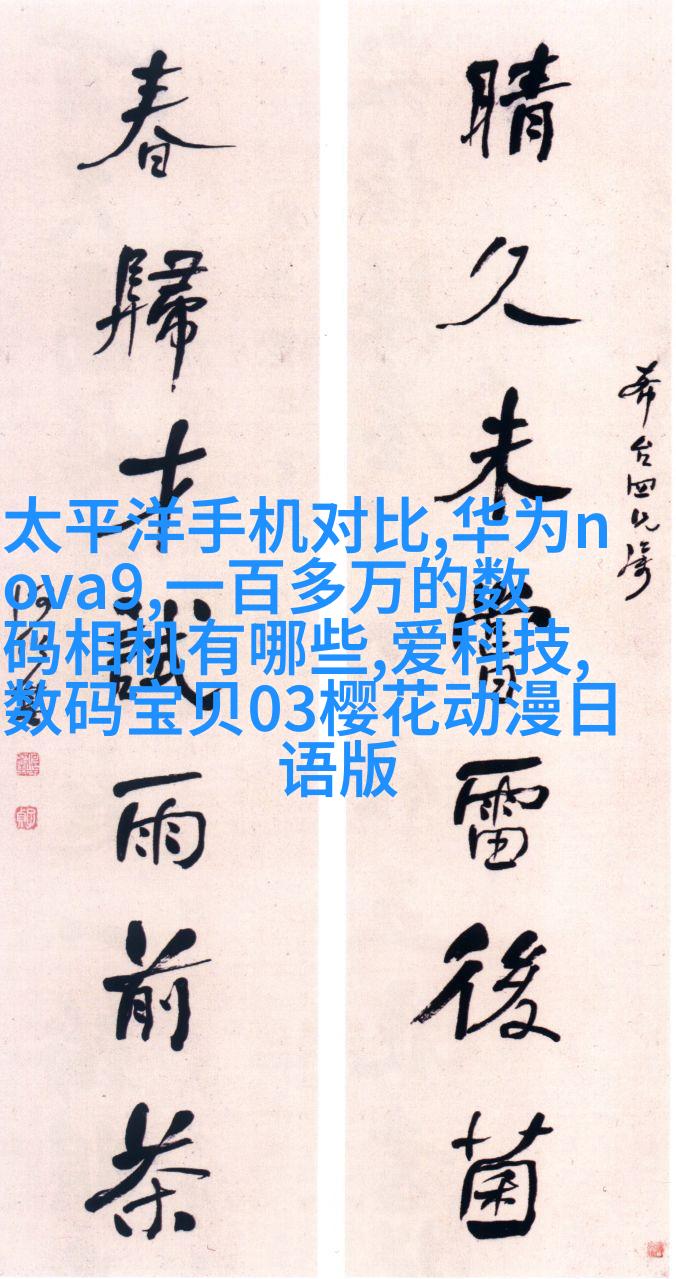 晴久未嘗雷後菌
春歸才試雨前茶
太平洋手机对比,华为n
ova9,一百多万的数
码相机有哪些,爱科技,
数码宝贝03樱花动漫日
语版